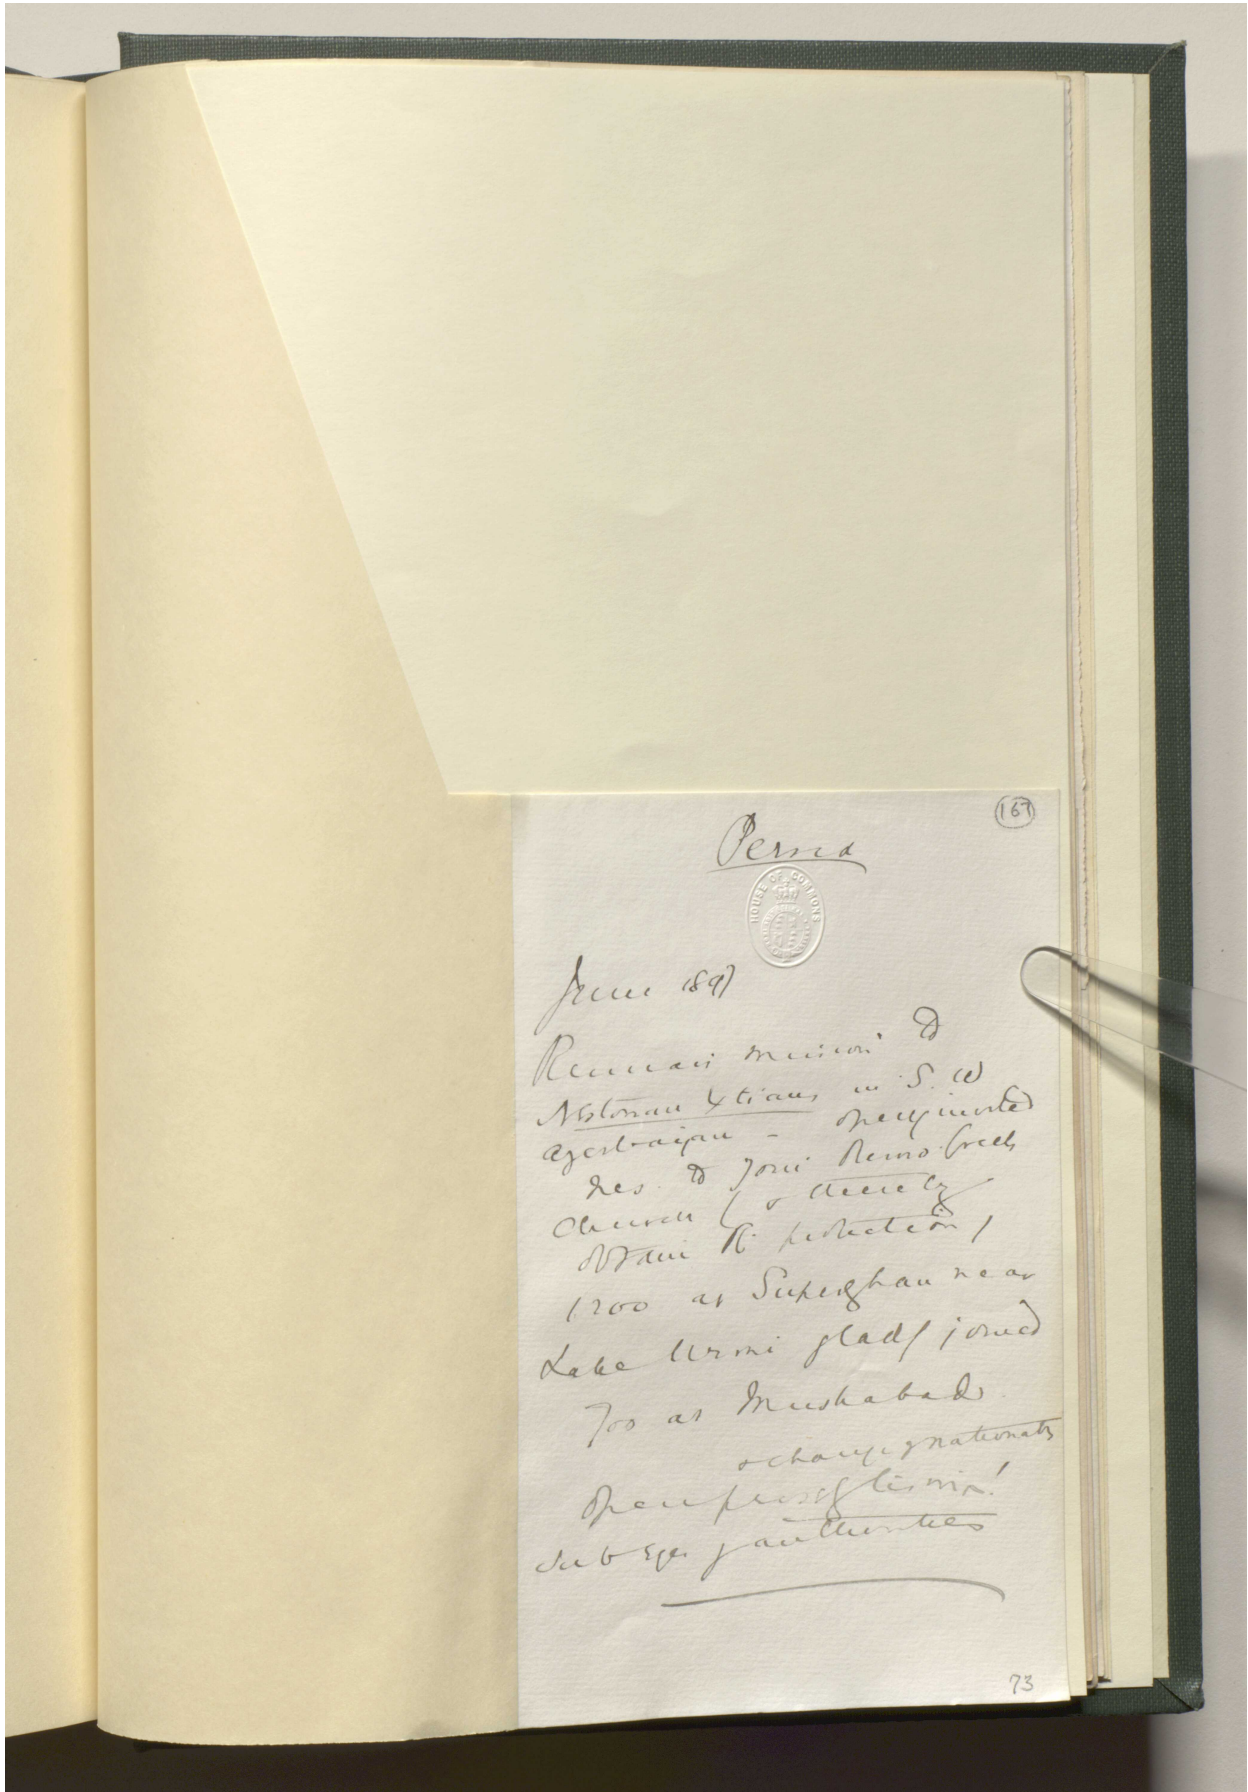 167
Persia
HOUSE OF COMMONS
June 1897
Russian mission to
Nestorian Xtians in S. W
Azerbaijan - openly invited
Nes. to join Russo-Greek
Church (& thereby
obtain R. protection)
1200 at Superghan near
Lake Urmi gladly joined
700 at Mushabad.
& change of nationality
Open proselytismn!
sub eyes of authorities
73